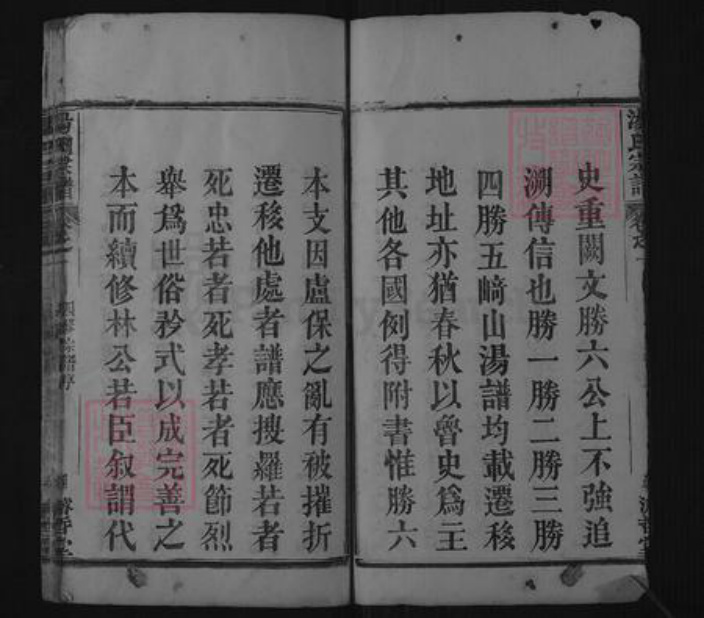 湯氏宗譜
史重闕文勝六公上不強追
溯傳信也勝一勝二勝三勝
四勝五﨑山湯譜均載遷移
地址亦猶春秋以魯史爲主
其他各國例得附書惟勝六
本支因盧保之亂有被摧折
遷移他處者譜應搜羅若者
死忠若者死孝若者死節烈
舉爲世俗矜式以成完善之
本而續修林公若臣叙謂代